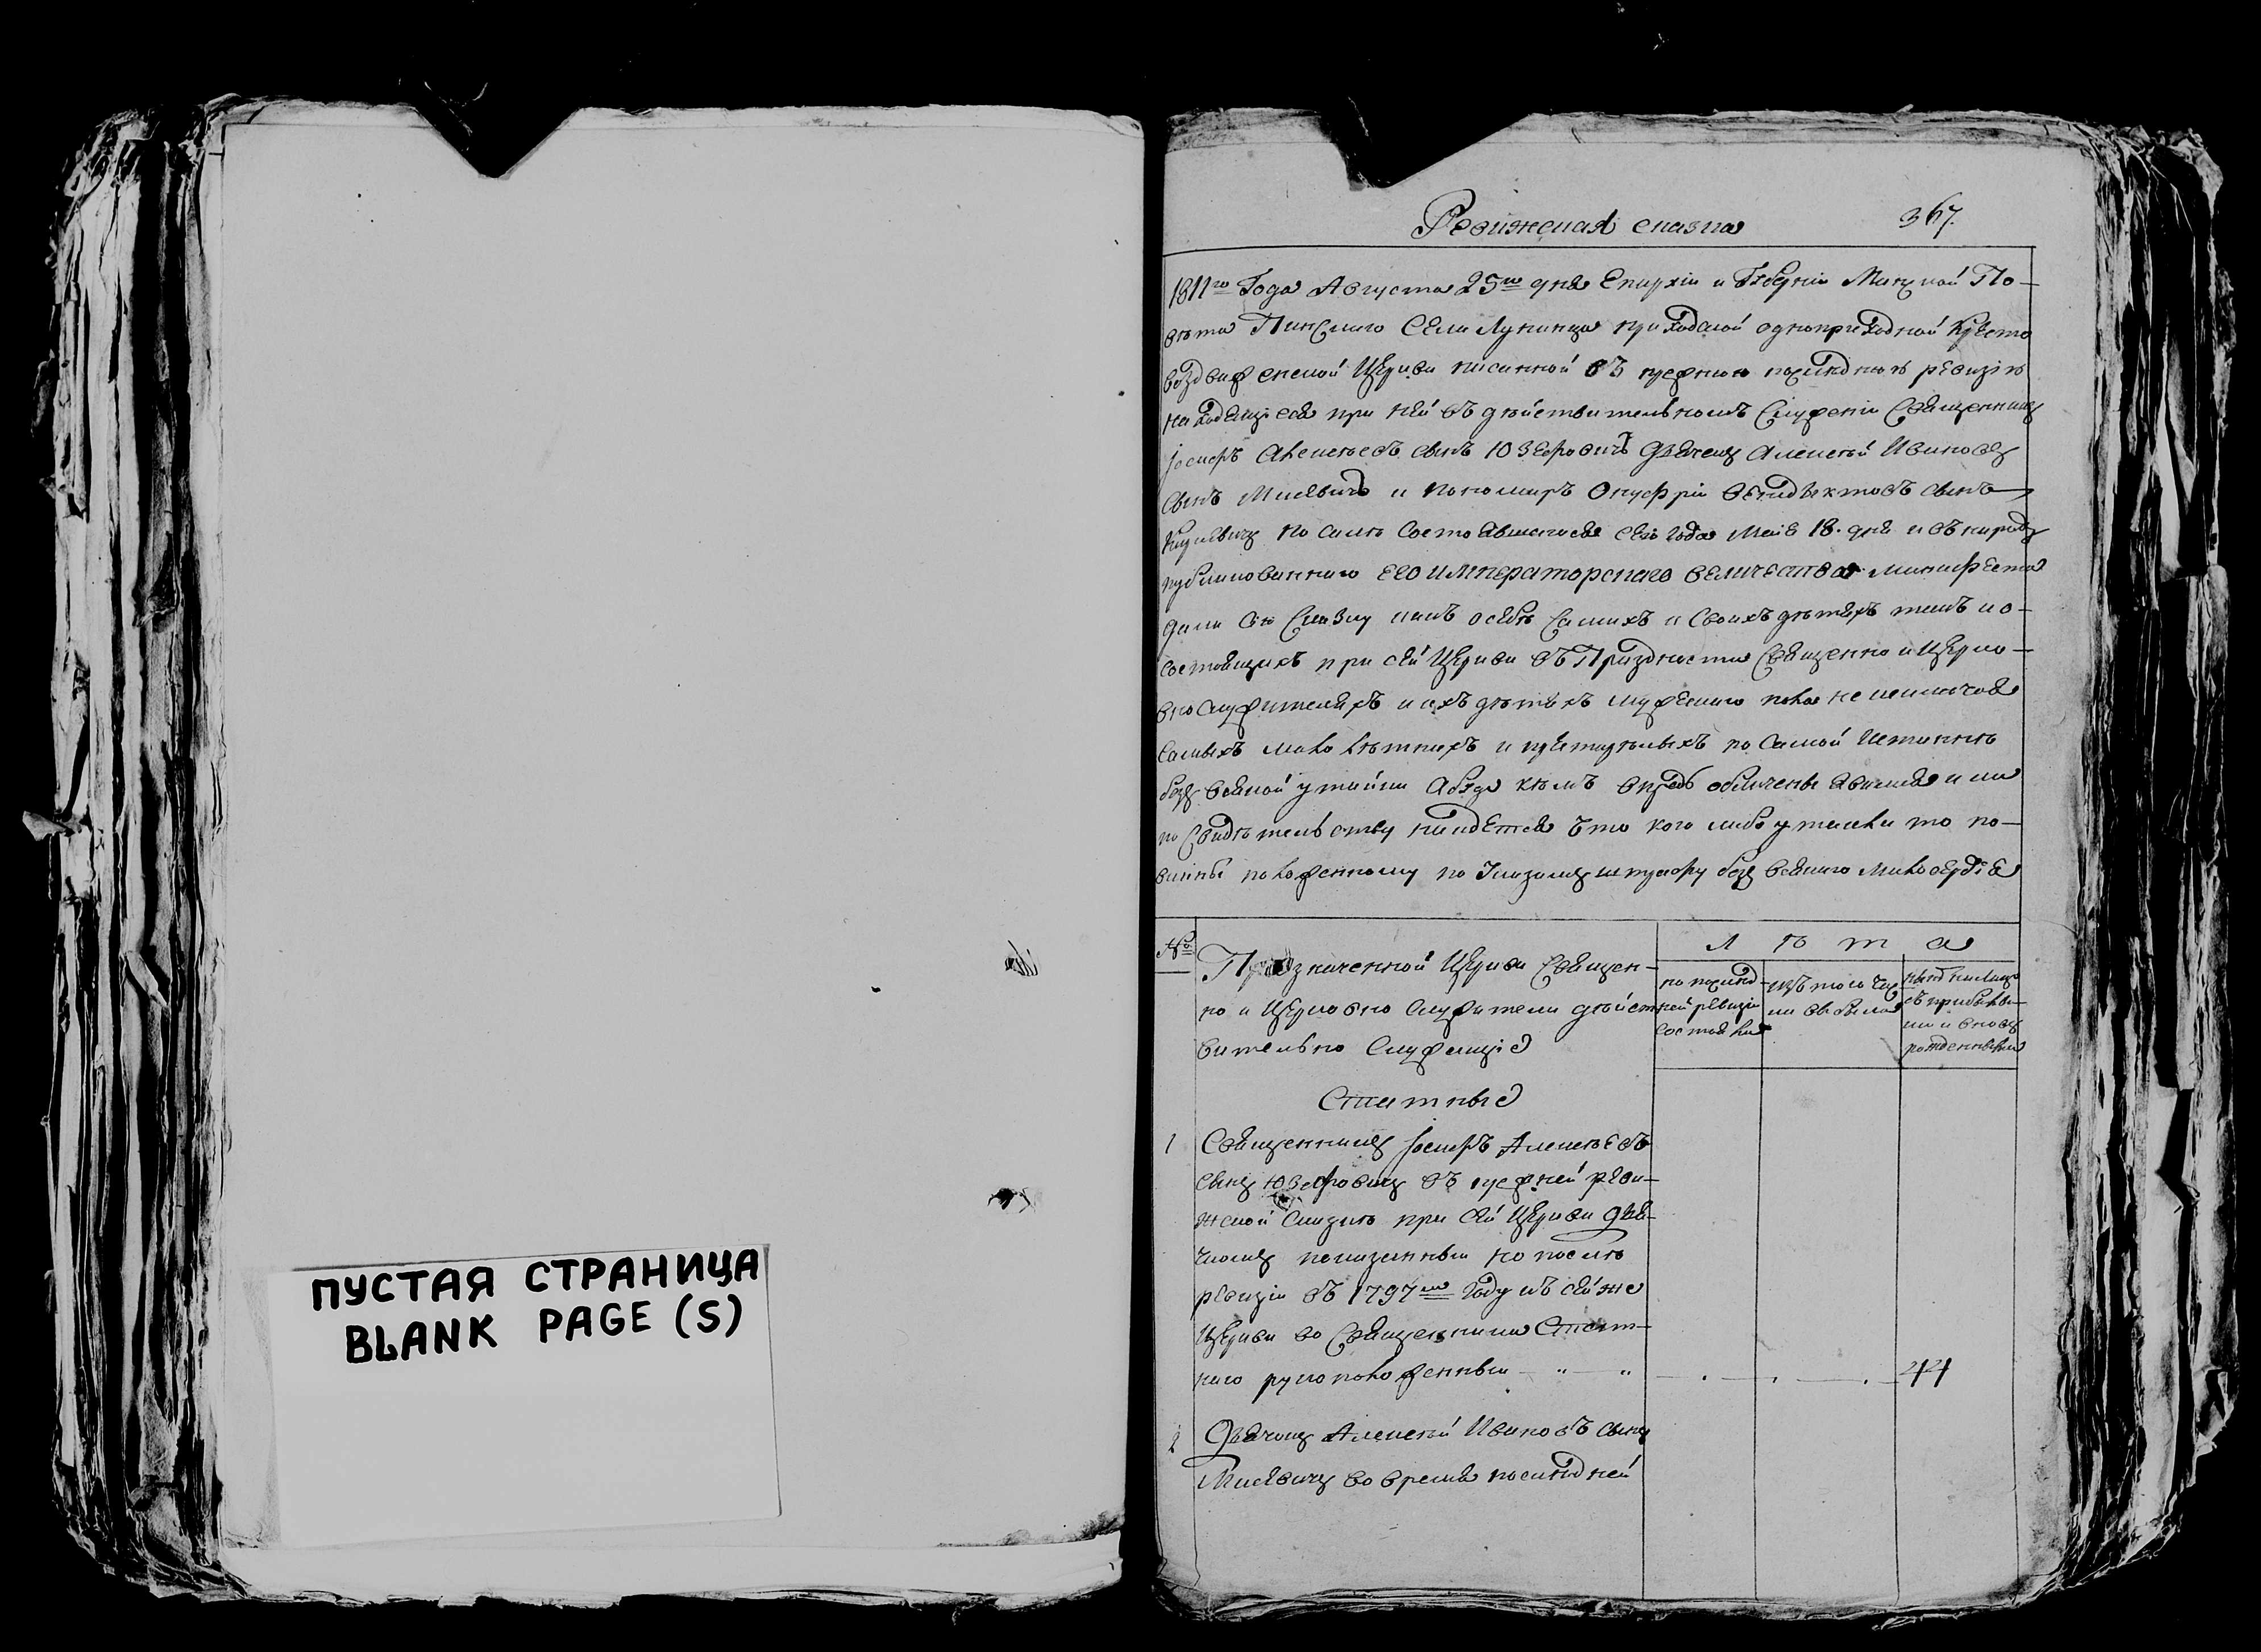 ПУСТАЯ СТРАНИЦА
BLANK PAGE (S)
Ревижская сказка
367.
1811го Года Августа 25го дня Епархіи и Губерніи Минской По-
вѣта Пинскаго Села Лунинца приходской одноприходной Кресто
воздвиженской Церкви писанной въ прежнюю последнюю ревизію
находящіеся при ней въ дѣйствительномъ Служеніи Священникъ
Іосифъ Алексѣевъ сынъ Юзефовичъ Дьячекъ Алексѣй Ивановъ
сынъ Мисевичъ и пономарь Онуфрій сынъ
по силѣ Состоявшагося сего года Маія 18. дня и въ народъ
публикованнаго его императорскаго величества манифеста
дали сію Сказку какъ о себѣ самихъ и своихъ дѣтяхъ такъ и о
состоящихъ при сей Церкви въ Праздности Священно и Церко-
вно служителяхъ и ихъ дѣтяхъ мужескаго пола не исключая
самыхъ малолѣтнихъ и престарѣлыхъ по самой Истиннѣ
безъ всякой утайки А буде кѣмъ впредь обличены явимся или
по Свидѣтельству найдется что кого либо утаили то по-
винны положенному по Указамъ штрафу безъ всякаго милосердія
№
Л ѣ т а
Предозначенной Церкви Священ-
но и Церковно служители дѣйст
вительно Служащіе
по послѣд-
ней ревизіи
состояли
изъ того чис
ла выбыло
нынѣ на лицо
съ прибылы-
ми и вновь
рожденными
Статные
1 Священникъ Іосифъ Алексѣевъ
сынъ Юзефовичъ въ прежней реви-
жской сказкѣ при сей Церкви дья-
чкомъ показанный но послѣ
ревизіи въ 1797мъ Году къ сей же
Церкви во Священника Стат-
наго рукоположенный 44
2 Дьячокъ Алексѣй Ивановъ сынъ
Мисевичъ во время послѣдней